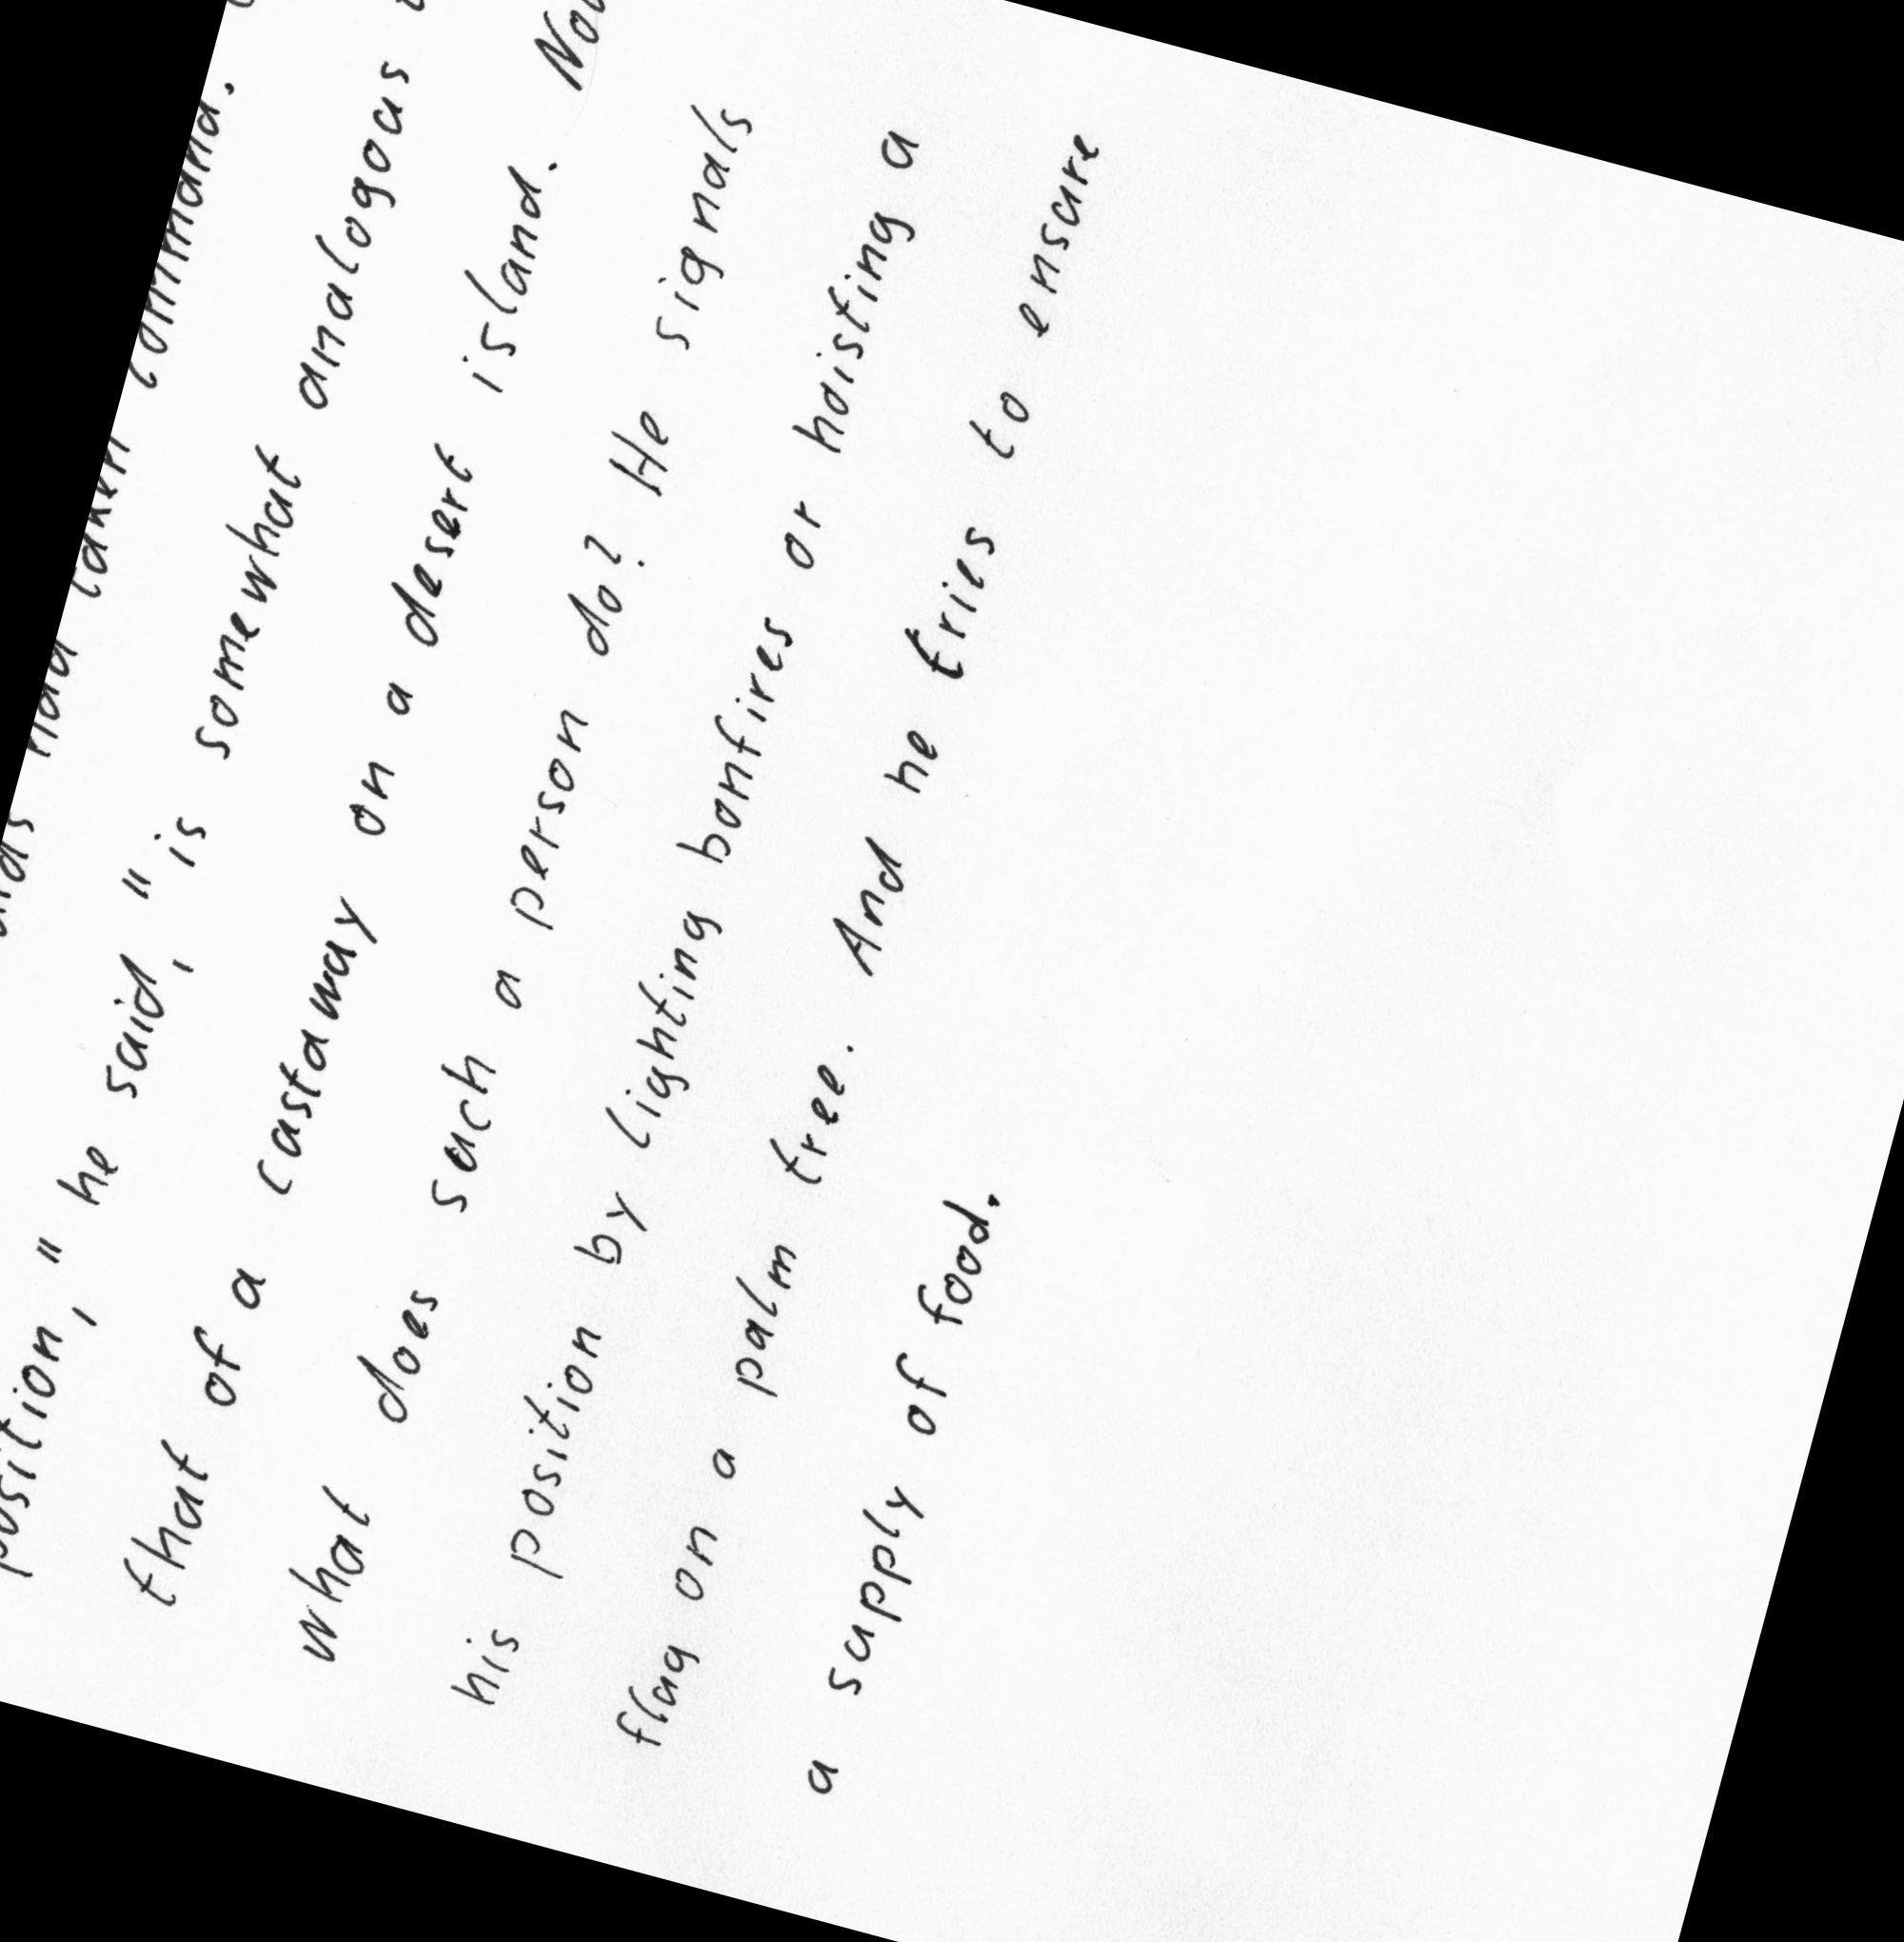 had taken command.
position," he said, "is somewhat analogous
that of a castaway on a desert island. Now
what does such a person do? He signals
his position by lighting bonfires or hoisting a
flag on a palm tree. And he tries to ensure
a supply of food.